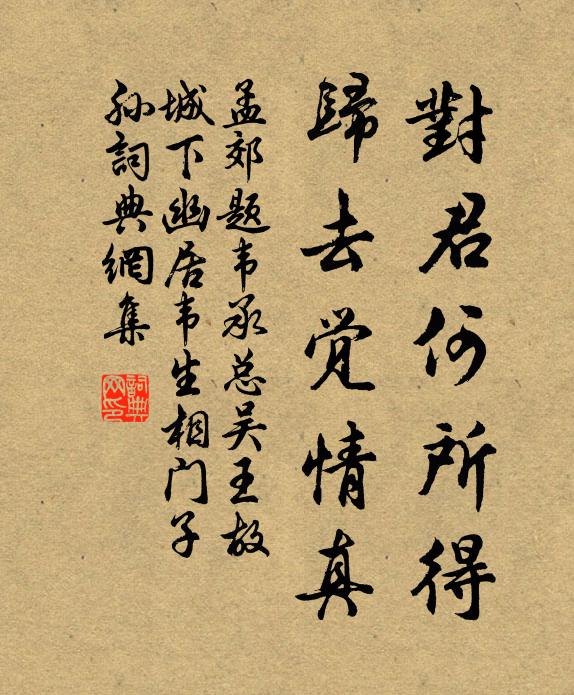 對君何所得
歸去觉情真
孟郊题韦承总吴王故
城下幽居韦生相门子
孙詞典網集
詞典
网印